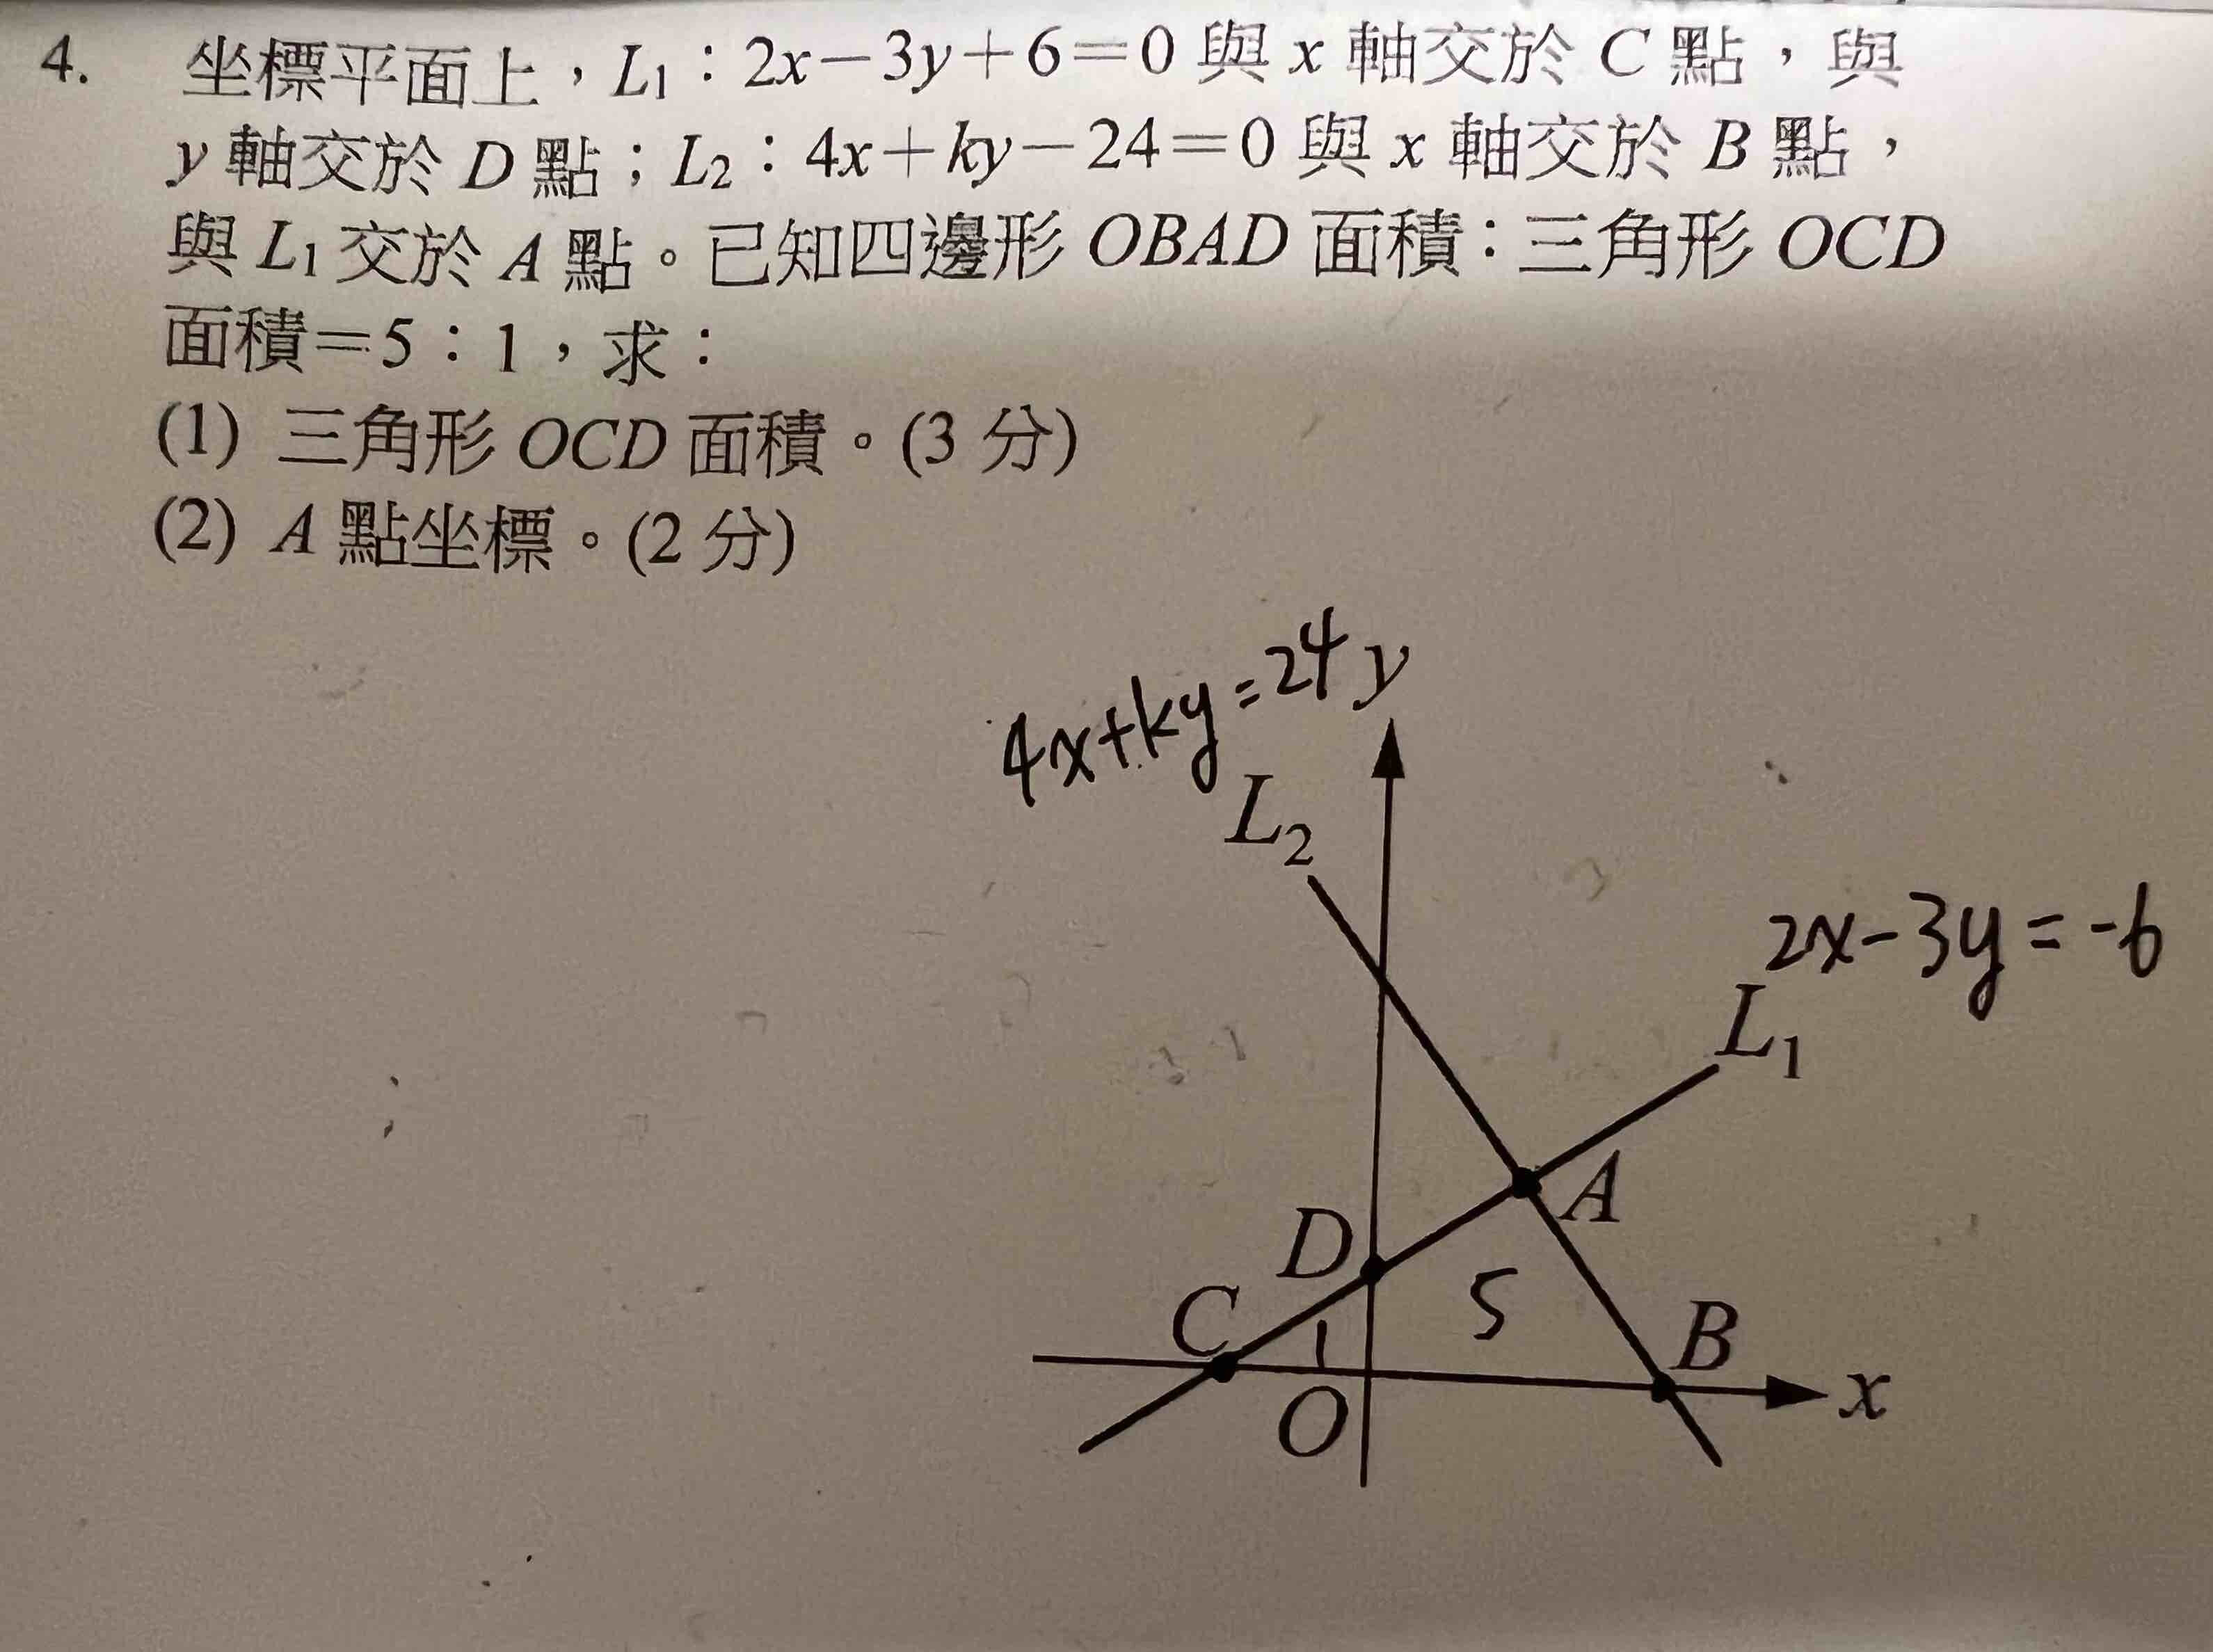 4. 坐標平面上，L₁：2x－3y＋6＝0 與 x 軸交於 C 點，與
y 軸交於 D 點；L₂：4x＋ky－24＝0 與 x 軸交於 B 點，
與 L₁ 交於 A 點。已知四邊形 OBAD 面積：三角形 OCD
面積＝5：1，求：
(1) 三角形 OCD 面積。(3 分)
(2) A 點坐標。(2 分)
4x+ky=24
y
L₂
2x-3y=-6
L₁
A
D
5
C
1
B
O
x